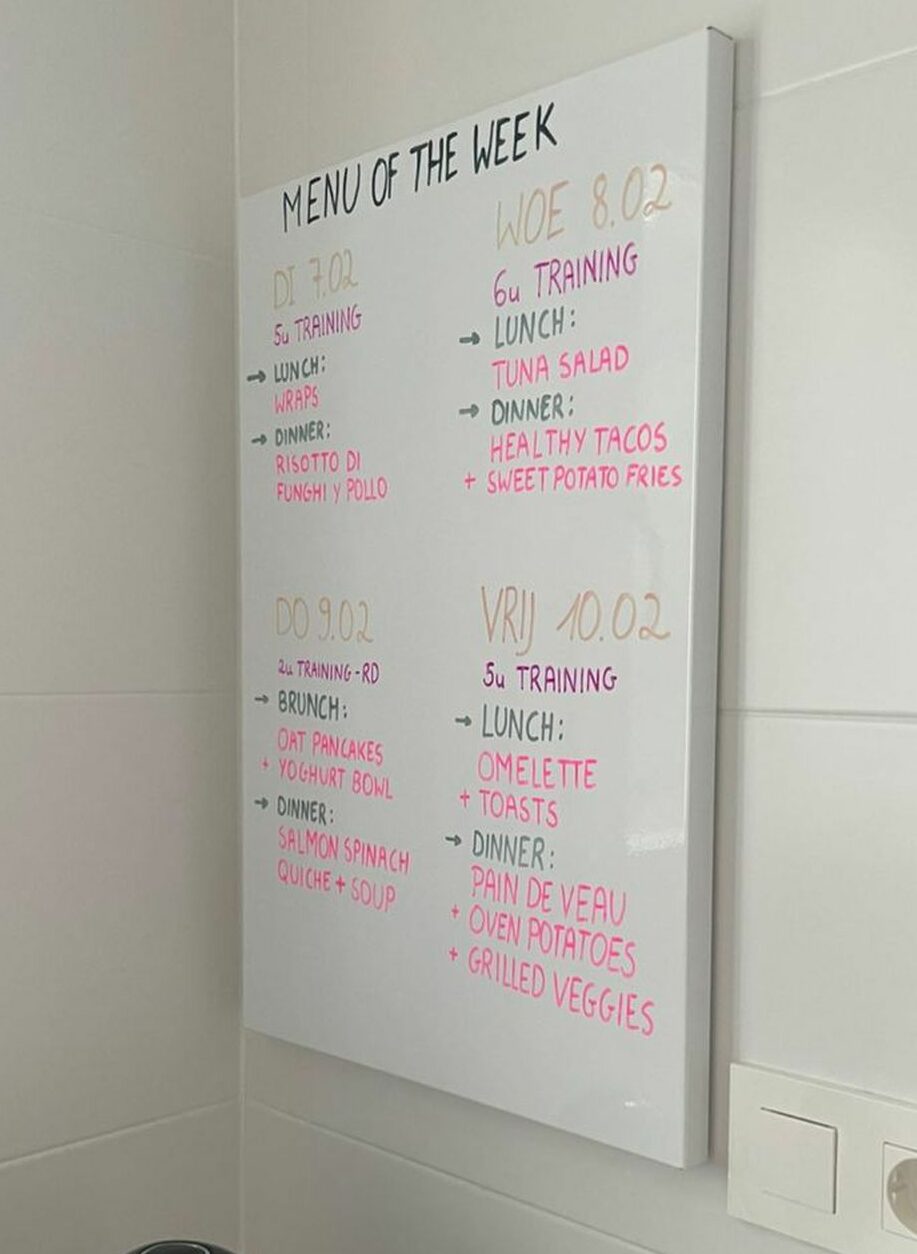 MENU OF THE WEEK
DI 7.02
5u TRAINING
→ LUNCH:
WRAPS
→ DINNER:
RISOTTO DI
FUNGHI y POLLO
WOE 8.02
6u TRAINING
→ LUNCH:
TUNA SALAD
→ DINNER:
HEALTHY TACOS
+ SWEET POTATO FRIES
DO 9.02
2u TRAINING-RD
→ BRUNCH:
OAT PANCAKES
+ YOGHURT BOWL
→ DINNER:
SALMON SPINACH
QUICHE + SOUP
VRIJ 10.02
5u TRAINING
→ LUNCH:
OMELETTE
+ TOASTS
→ DINNER:
PAIN DE VEAU
+ OVEN POTATOES
+ GRILLED VEGGIES